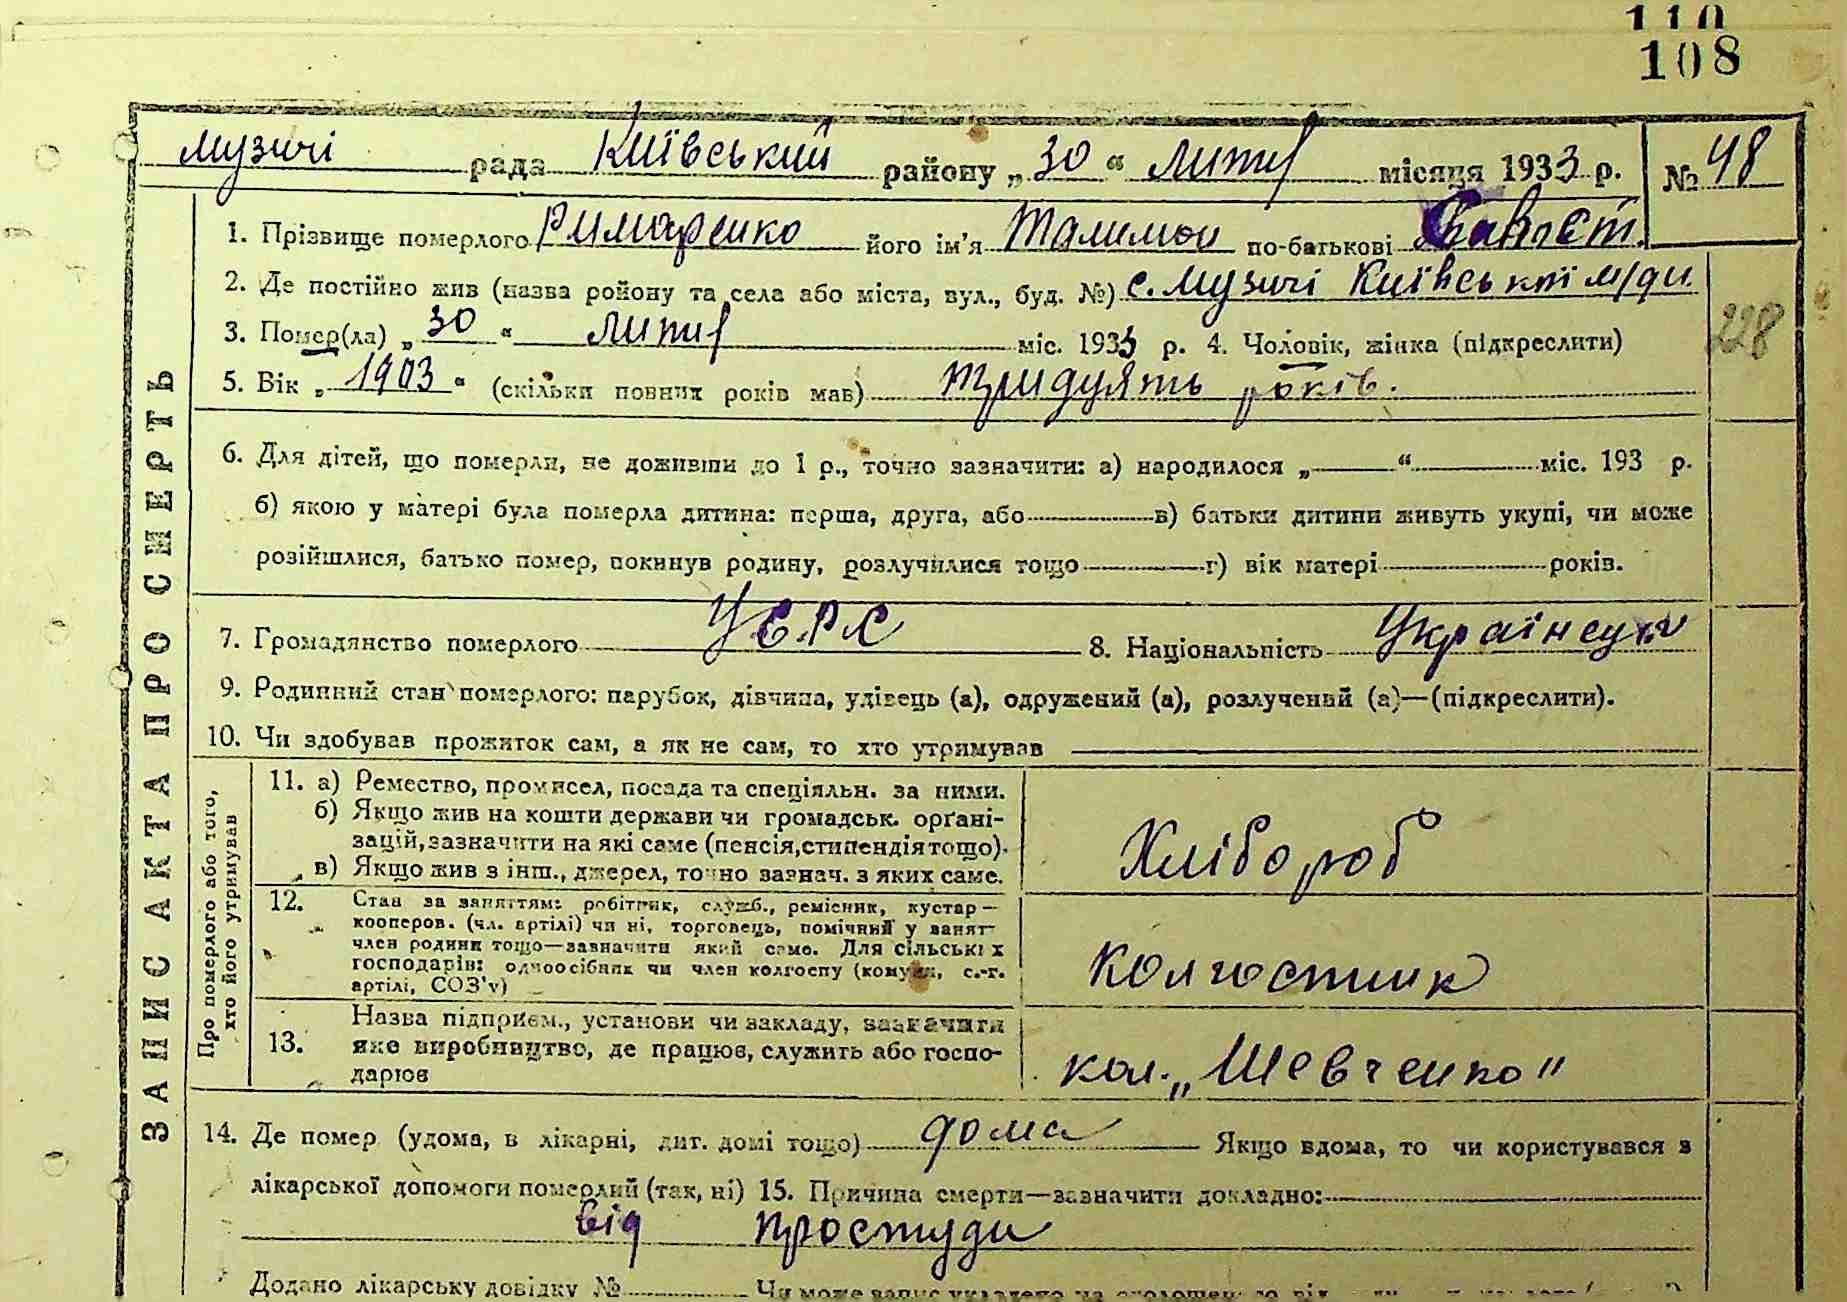 110
108
Музичі рада Київський району „30“ липня місяця 1933 р. № 48
1. Прізвище померлого Римаренко його ім'я Талимон по-батькові
2. Де постійно жив (назва району та села або міста, вул., буд. №) с. Музичі Київської м/ди.
3. Помер(ла) „30“ липня міс. 1933 р. 4. Чоловік, жінка (підкреслити)
228
5. Вік „1903“ (скільки повних років мав) тридцять років.
6. Для дітей, що померли, не доживши до 1 р., точно зазначити: а) народилося „—“ міс. 193 р.
б) якою у матері була померла дитина: перша, друга, або в) батьки дитини живуть укупі, чи може
розійшлися, батько помер, покинув родину, розлучилися тощо г) вік матері років.
7. Громадянство померлого УСРР 8. Національність Українець
9. Родинний стан померлого: парубок, дівчина, удівець (а), одружений (а), розлучений (а)—(підкреслити).
10. Чи здобував прожиток сам, а як не сам, то хто утримував
ЗАПИС АКТА ПРО СМЕРТЬ
Про померлого або того, хто його утримував
11. а) Ремество, промисел, посада та спеціяльн. за ними.
б) Якщо жив на кошти держави чи громадськ. орґані-
зацій, зазначити на які саме (пенсія, стипендія тощо).
в) Якщо жив з інш., джерел, точно зазнач. з яких саме.
Хлібороб
12. Стан за заняттям: робітник, служб., ремісник, кустар—
кооперов. (чл. артілі) чи ні, торговець, помічний у занят-
член родини тощо—зазначити який саме. Для сільських
господарів: одноосібник чи член колгоспу (комуни, с.-г.
артілі, СОЗ'у)
колгоспник
13. Назва підприєм., установи чи закладу, зазначити
яке виробництво, де працює, служить або госпо-
дарює
кол. „Шевченко"
14. Де помер (удома, в лікарні, дит. домі тощо) дома Якщо вдома, то чи користувався з
лікарської допомоги померлий (так, ні) 15. Причина смерти—зазначити докладно:
від простуди
Додано лікарську довідку №